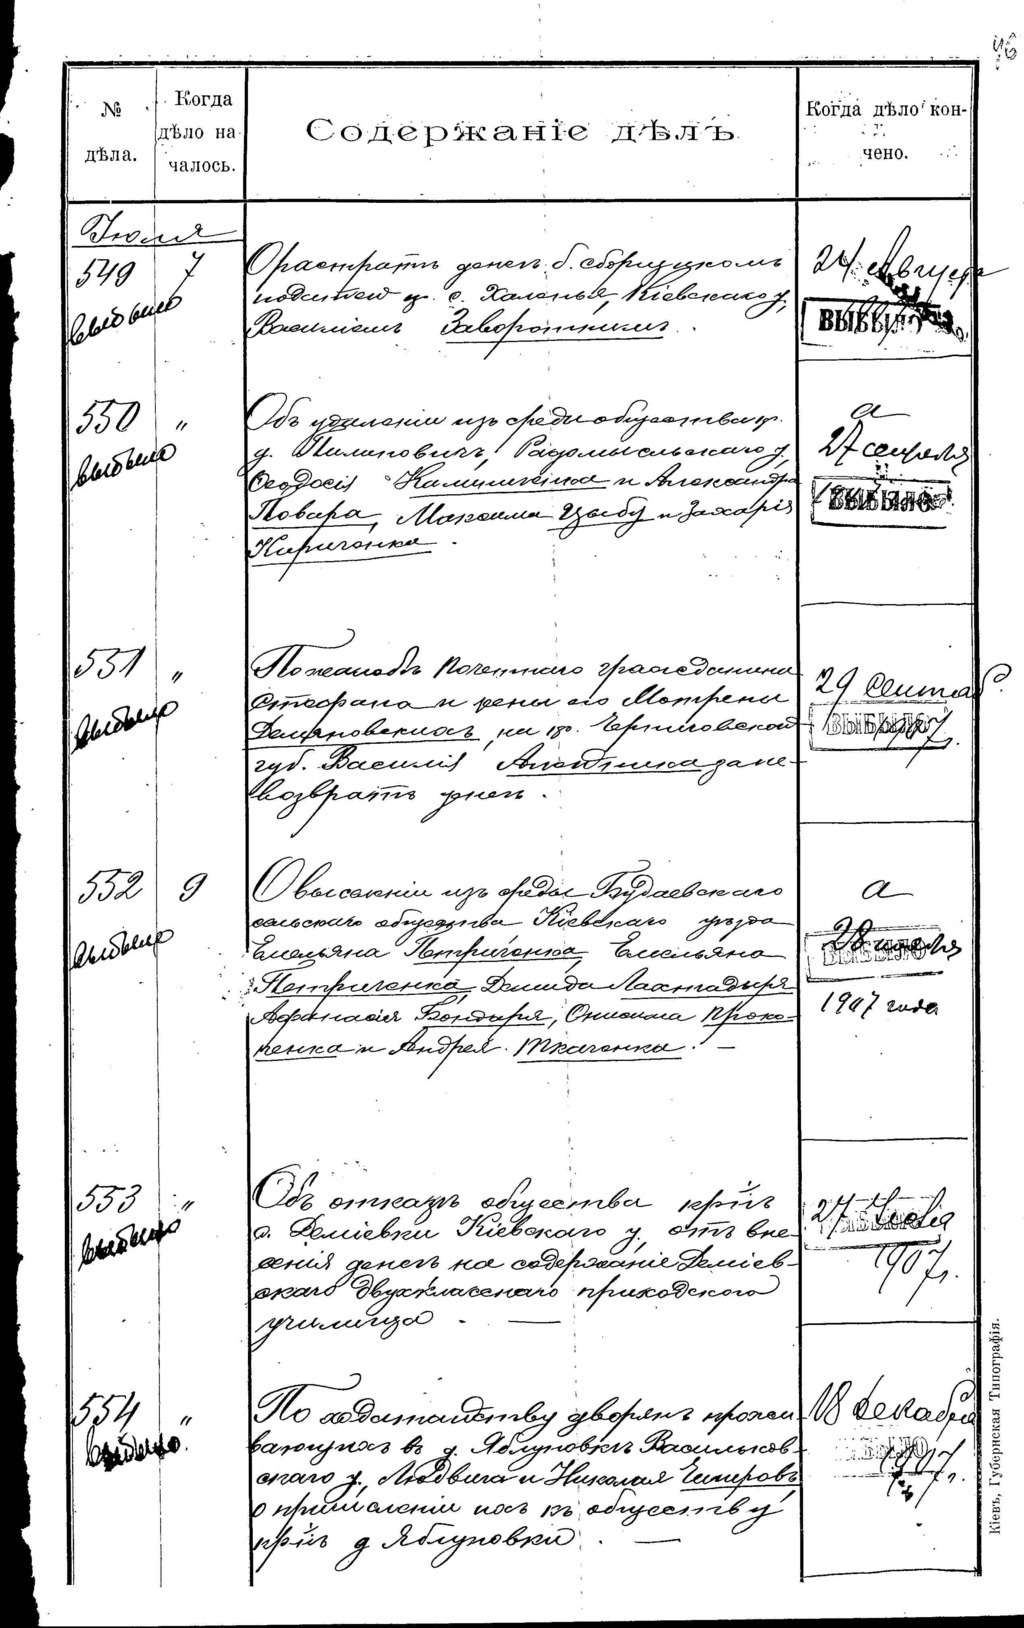 46
№ дѣла.
Когда дѣло началось.
Содержаніе дѣлъ
Когда дѣло кончено.
Іюля
549 7
выбыло
О растратѣ денегъ б. сборщикомъ
податей кр. с. Халепья, Кіевскаго у,
Василіемъ Заворотнымъ.
24 Августа
ВЫБЫЛО
550 "
выбыло
Объ удаленіи изъ среды общества кр.
д. Филиповичъ, Радомысльскаго у,
Ѳеодосія и Александра
Повара, Максима Цыбу и Захарія
Кириченка.
а
27 апрѣля
ВЫБЫЛО
551 "
выбыло
По жалобѣ Почетнаго гражданина
Стефана и жены его Мотрены
на кр. Черниговской
губ. Василія за не-
возвратъ денегъ.
29 Сентяб.
ВЫБЫЛО
1907 г.
552 9
выбыло
О выселеніи изъ среды Будаевскаго
сельскаго общества Кіевскаго уѣзда
Емельяна Петриченка, Емельяна
Петриченка, Демида Лахтадыря
Афанасія Бондаря, Онисима Проко-
пенка и Андрея Ткаченка. —
а
28 апрѣля
ВЫБЫЛО
1907 года
553 "
выбыло
Объ отказѣ общества кр-нъ
с. Деміевки Кіевскаго у, отъ вне-
сенія денегъ на содержаніе Деміев-
скаго двухкласснаго приходскаго
училища. —
27 Іюля
1907 г.
554 "
выбыло.
По ходатайству дворянъ прожи
вающихъ въ д. Яблуновкѣ Васильков-
скаго у, Людвига и Николая
о причисленіи ихъ къ обществу
кр-нъ д Яблуновки. —
18 Декабря
1907 г.
Кіевъ, Губернская Типографія.